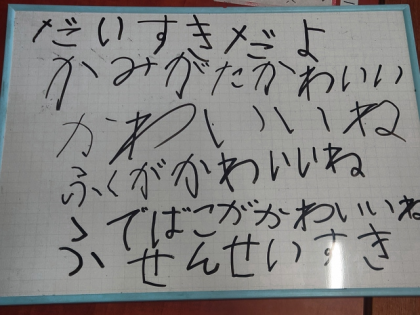 だいすきだよ
かみがたかわいい
かわいいね
ふくがかわいいね
ふでばこがかわいいね
かせんせいすき